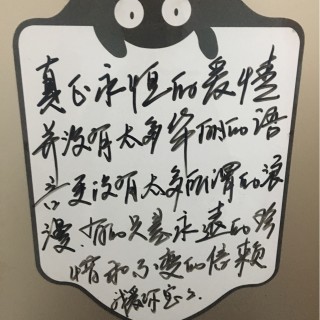 真正永恒的爱情
并没有太多华丽的语
言更没有太多所谓的浪
漫.有的只是永远的珍
惜和不变的信赖
我爱你宝宝